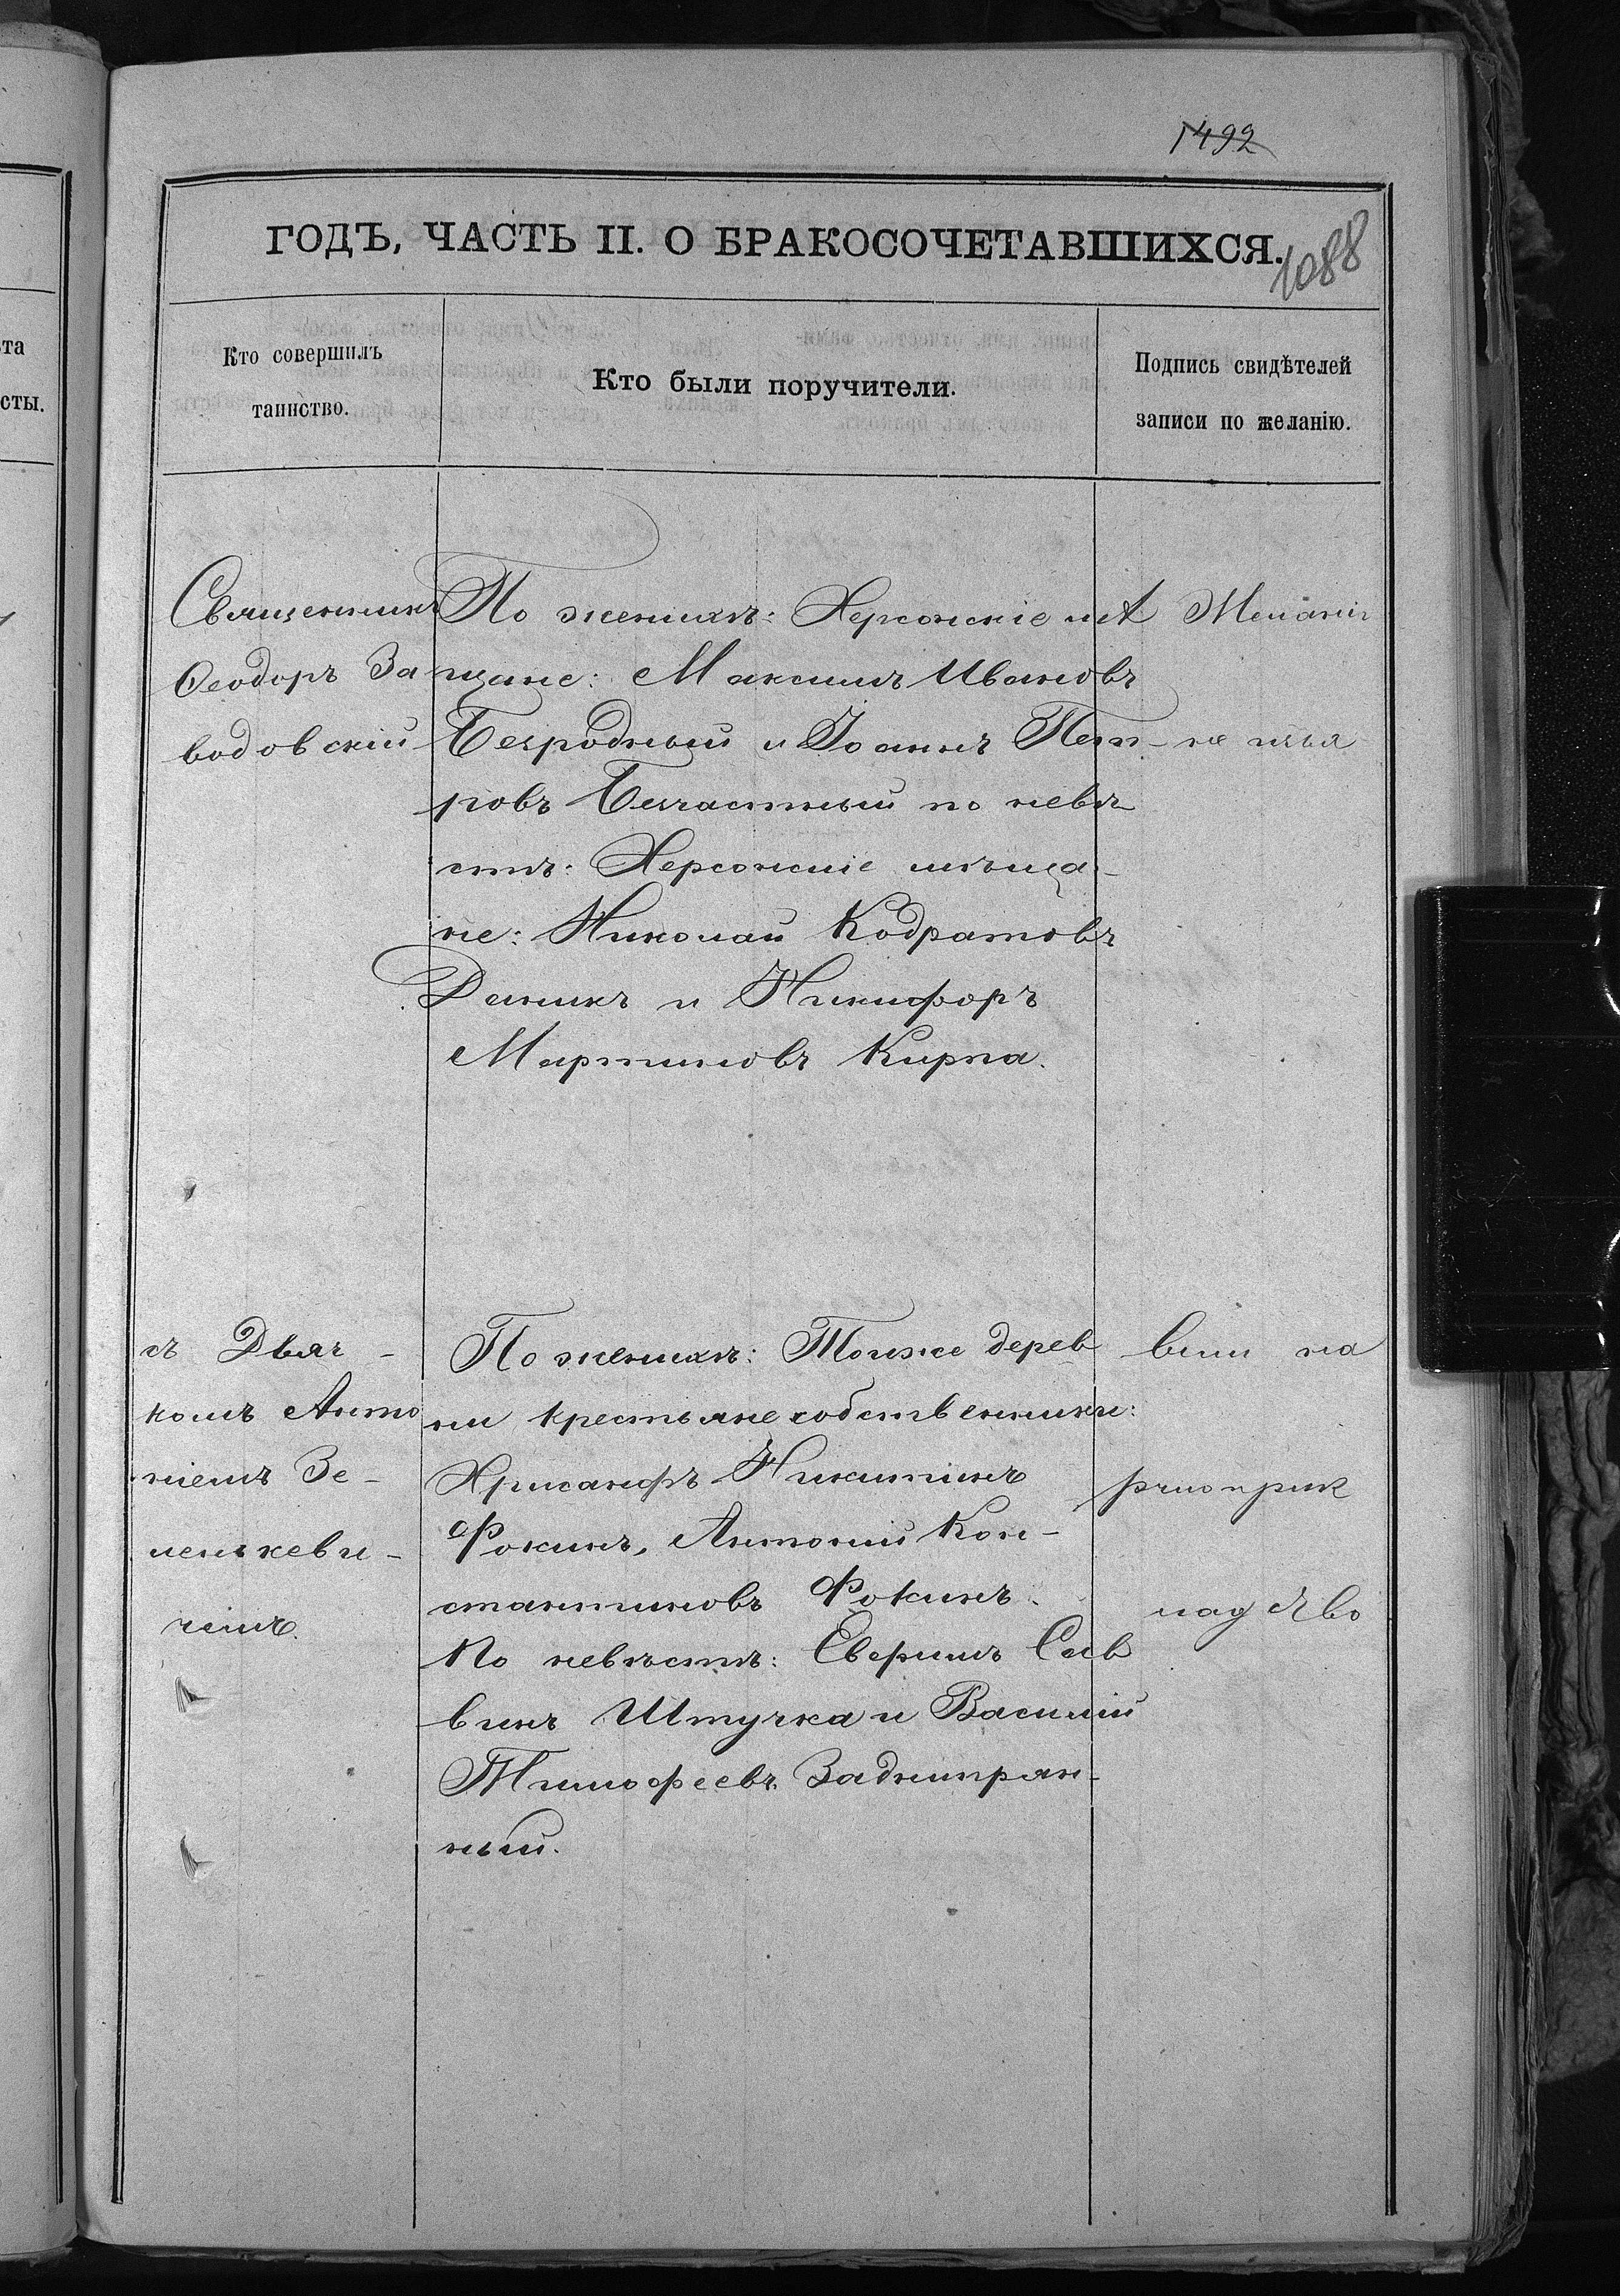 1492
ГОДЪ, ЧАСТЬ II. О БРАКОСОЧЕТАВШИХСЯ.
1088
Кто совершилъ
таинство.
Кто были поручители.
Подпись свидѣтелей
записи по желанію.
та
сты.
Священникъ
Ѳеодоръ За
водовскій
По женихѣ: Херсонскіе мѣ
щане: Максимъ Ивановъ
Безродный и Іоаннъ Пет-
ровъ Безчастный по невѣ
стѣ: Херсонскіе мѣща-
не: Николай Кодратовъ
Деникъ и Никифоръ
Мартиновъ Кирпа.
съ Дьяч-
комъ Анто
ніемъ Зе-
ленкеви-
чемъ.
По женихѣ: Тоиже дерев
ни крестьяне собственники:
Хрисанфъ Никитинъ
Фокинъ, Антоній Кон-
стантиновъ Фокинъ.
По невѣстѣ: Северинъ Сав
винъ Штучка и Василій
Тимофеевъ Заднипрян-
ный.
вши на